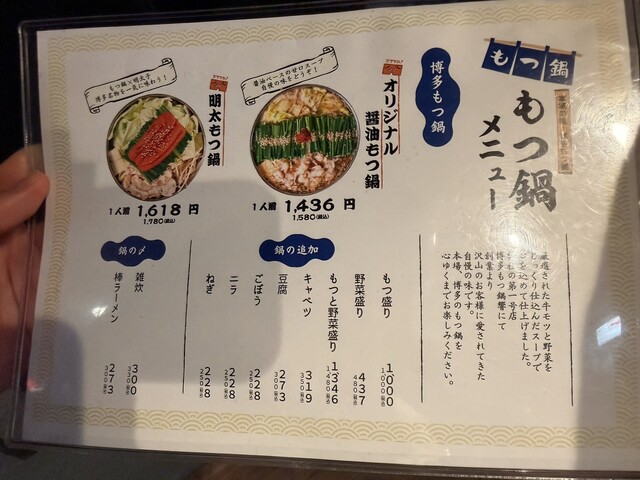 もつ鍋
もつ鍋
メニュー
博多もつ鍋
厳選された牛モツと野菜を
じっくり仕込んだスープで
心を込めて仕上げました。
第一号店
博多もつ鍋響にて
創業より
沢山のお客様に愛されてきた
自慢の味です。
本場、博多のもつ鍋を
心ゆくまでお楽しみください。
オリジナル
醤油もつ鍋
醤油ベースの甘口スープ
自慢の味をどうぞ！
1人前 1,436 円
1,580(税込)
明太もつ鍋
もつ鍋×明太子
博多名物を一気に味わう！
1人前 1,618 円
1,780(税込)
鍋の追加
もつ盛り
野菜盛り 437 480(税込)
もつと野菜盛り 1,346 1,480(税込)
キャベツ 319 350(税込)
豆腐 273 300(税込)
ごぼう 228 250(税込)
ニラ 228 250(税込)
ねぎ 228 250(税込)
鍋の〆
雑炊 300 330(税込)
棒ラーメン 273 300(税込)